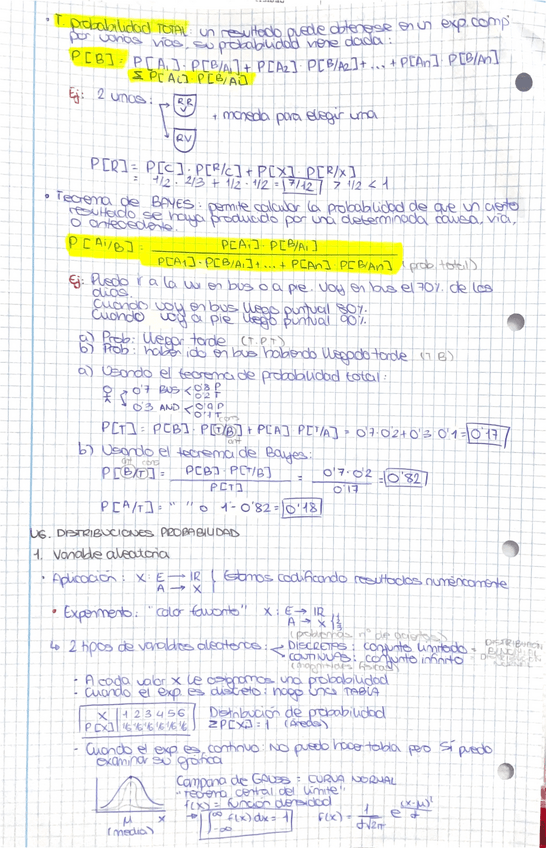 • T. probabilidad TOTAL: un resultado puede obtenerse en un exp. comp.
por varias vías, su probabilidad viene dada:
P[B] = P[A₁] · P[B/A₁] + P[A₂] · P[B/A₂] + ... + P[An] · P[B/An]
Σ P[Ai] · P[B/Ai]
Ej: 2 urnas:
RR
V
, moneda para elegir una
RV
P[R] = P[C] · P[R/C] + P[X] · P[R/X]
= 1/2 · 2/3 + 1/2 · 1/2 = 7/12 > 1/2 < 1
• Teorema de BAYES: permite calcular la probabilidad de que un cierto
resultado se haya producido por una determinada causa, vía,
o antecedente.
P[Ai/B] = P[Ai] · P[B/Ai]
P[A₁] · P[B/A₁] + ... + P[An] · P[B/An] (prob. total)
Ej: Puedo ir a la uni en bus o a pie. Voy en bus el 70% de los
días.
Cuando voy en bus llego puntual 80%.
Cuando voy a pie llego puntual 90%.
a) Prob: llegar tarde (T.P.T)
b) Prob: haber ido en bus habiendo llegado tarde (T.B)
a) Usando el teorema de probabilidad total:
0'7 BUS < 0'8 P
0'2 T
0'3 AND < 0'9 P
0'1 T
P[T] = P[B] · P[T/B] + P[A] · P[T/A] = 0'7·0'2 + 0'3·0'1 = 0'17
b) Usando el teorema de Bayes:
P[B/T] = P[B] · P[T/B] = 0'7·0'2 = 0'82
P[T] 0'17
P[A/T] = " " o 1 - 0'82 = 0'18
U6. DISTRIBUCIONES PROBABILIDAD
1. Variable aleatoria
• Aplicación: X: E → IR | Estamos codificando resultados numéricamente
A → X
• Experimento: "color favorito" X: E → IR
A → X
↳ 2 tipos de variables aleatorias: DISCRETAS: conjunto limitado =
CONTINUAS: conjunto infinito =
- A cada valor X le asignamos una probabilidad
- Cuando el exp. es discreto: hago una TABLA
X | 1 2 3 4 5 6 Distribución de probabilidad
P[X] | 1/6 1/6 1/6 1/6 1/6 1/6 ΣP[X] = 1 (Áreas)
- Cuando el exp. es continuo: NO puedo hacer tabla pero SÍ puedo
examinar su gráfica
Campana de GAUSS = CURVA NORMAL
"Teorema central del límite"
f(x) = función densidad
μ x
(media)
∫ f(x)dx = 1